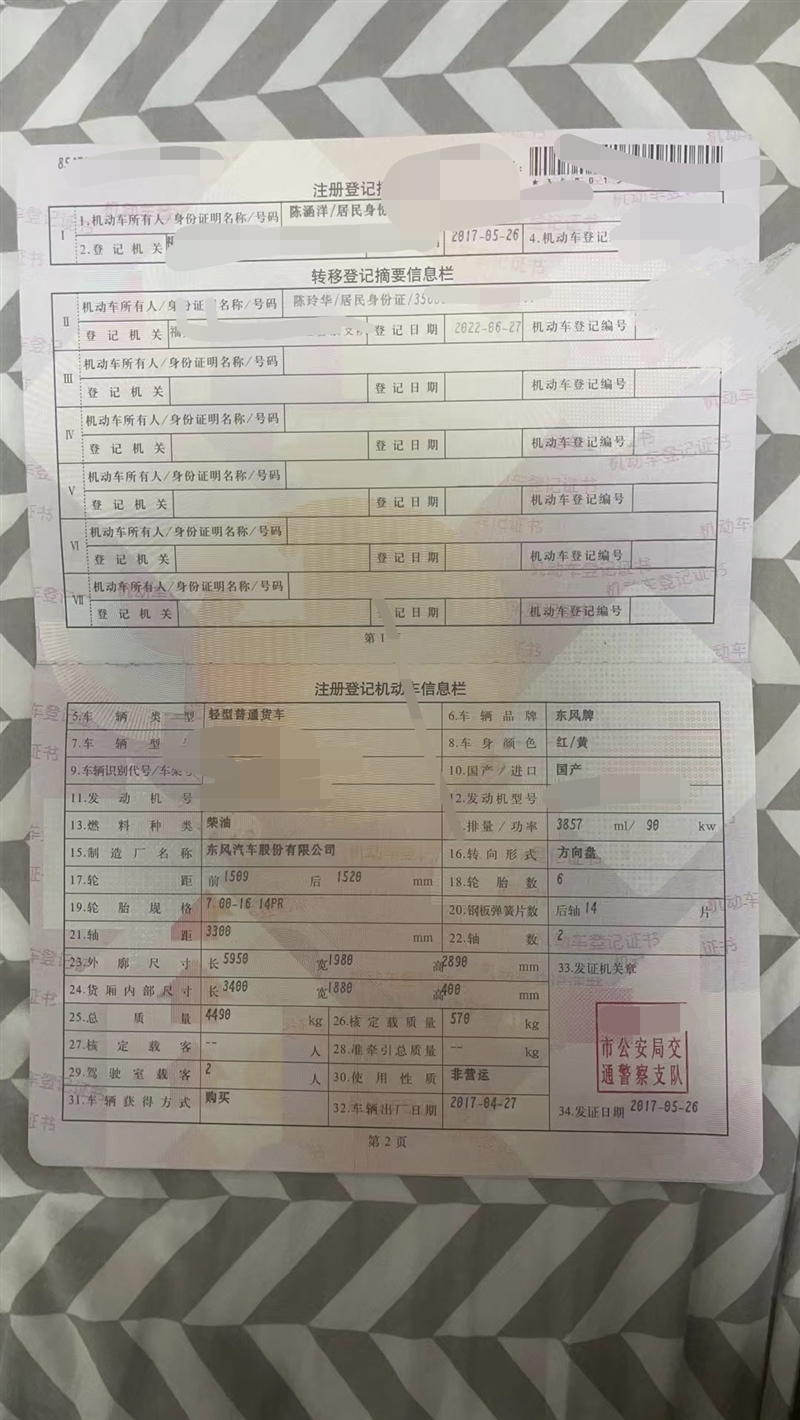 注册登记
I 1.机动车所有人/身份证明名称/号码 陈涵洋/居民身份
2.登记机关 2017-05-26 4.机动车登记
转移登记摘要信息栏
II 机动车所有人/身份证明名称/号码 陈玲华/居民身份证/350
登记机关 福 登记日期 2022-06-27 机动车登记编号
III 机动车所有人/身份证明名称/号码
登记机关 登记日期 机动车登记编号
IV 机动车所有人/身份证明名称/号码
登记机关 登记日期 机动车登记编号
V 机动车所有人/身份证明名称/号码
登记机关 登记日期 机动车登记编号
VI 机动车所有人/身份证明名称/号码
登记机关 登记日期 机动车登记编号
VII 机动车所有人/身份证明名称/号码
登记机关 登记日期 机动车登记编号
第1
注册登记机动车信息栏
5.车辆类型 轻型普通货车 6.车辆品牌 东风牌
7.车辆型 8.车身颜色 红/黄
9.车辆识别代号/车架 10.国产/进口 国产
11.发动机号 12.发动机型号
13.燃料种类 柴油 排量/功率 3857 ml/ 90 kw
15.制造厂名称 东风汽车股份有限公司 16.转向形式 方向盘
17.轮距 前 1509 后 1520 mm 18.轮胎数 6
19.轮胎规格 7.00-16 14PR 20.钢板弹簧片数 后轴 14 片
21.轴距 3300 mm 22.轴数 2
23.外廓尺寸 长 5950 宽 1980 高 2890 mm 33.发证机关章
24.货厢内部尺寸 长 3400 宽 1880 高 400 mm
25.总质量 4490 kg 26.核定载质量 570 kg
27.核定载客 -- 人 28.准牵引总质量 -- kg
29.驾驶室载客 2 人 30.使用性质 非营运
市公安局交
通警察支队
31.车辆获得方式 购买 32.车辆出厂日期 2017-04-27 34.发证日期 2017-05-26
第2页